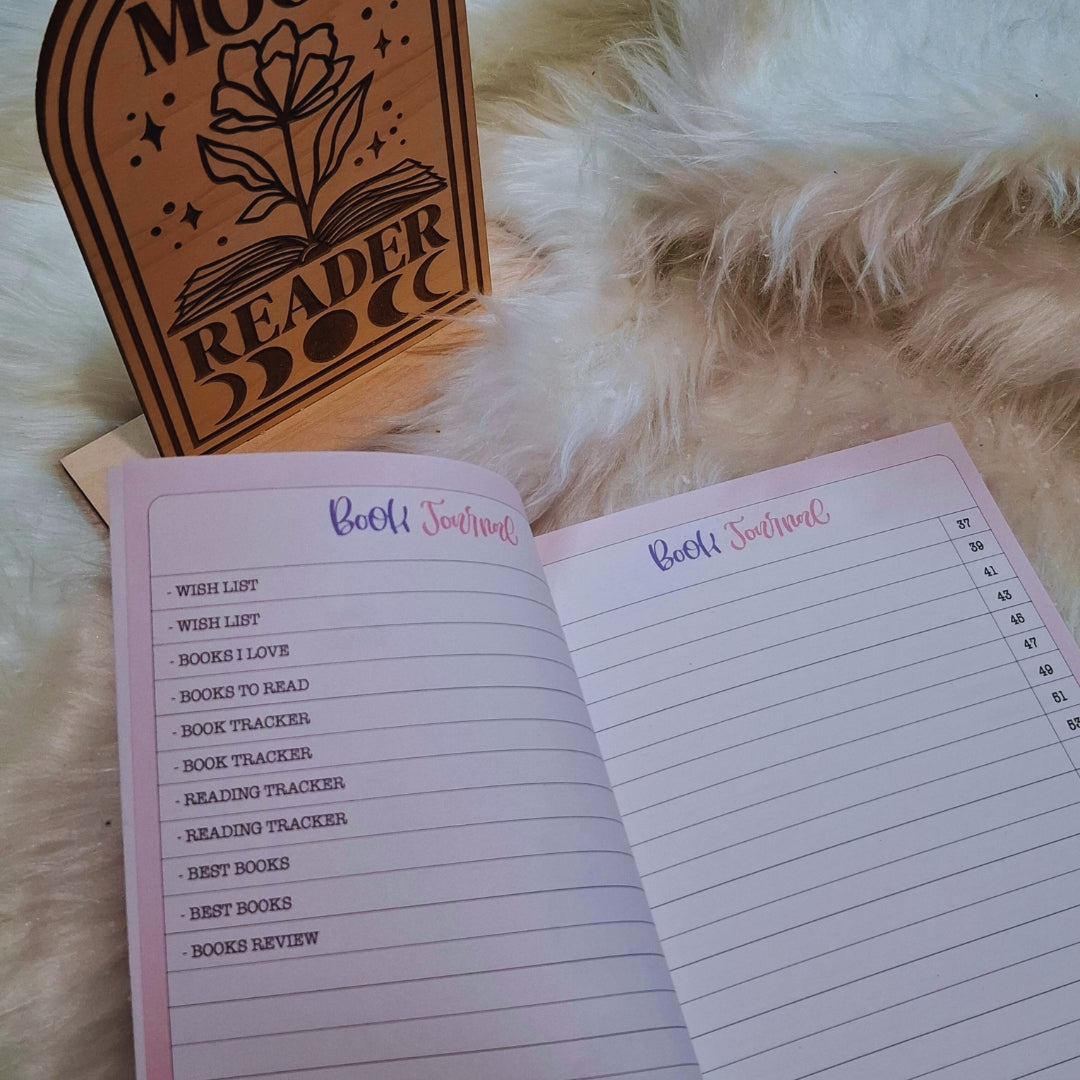 READER
Book Journal
- WISH LIST
- WISH LIST
- BOOKS I LOVE
- BOOKS TO READ
- BOOK TRACKER
- BOOK TRACKER
- READING TRACKER
- READING TRACKER
- BEST BOOKS
- BEST BOOKS
- BOOKS REVIEW
Book Journal
37
39
41
43
45
47
49
51
53